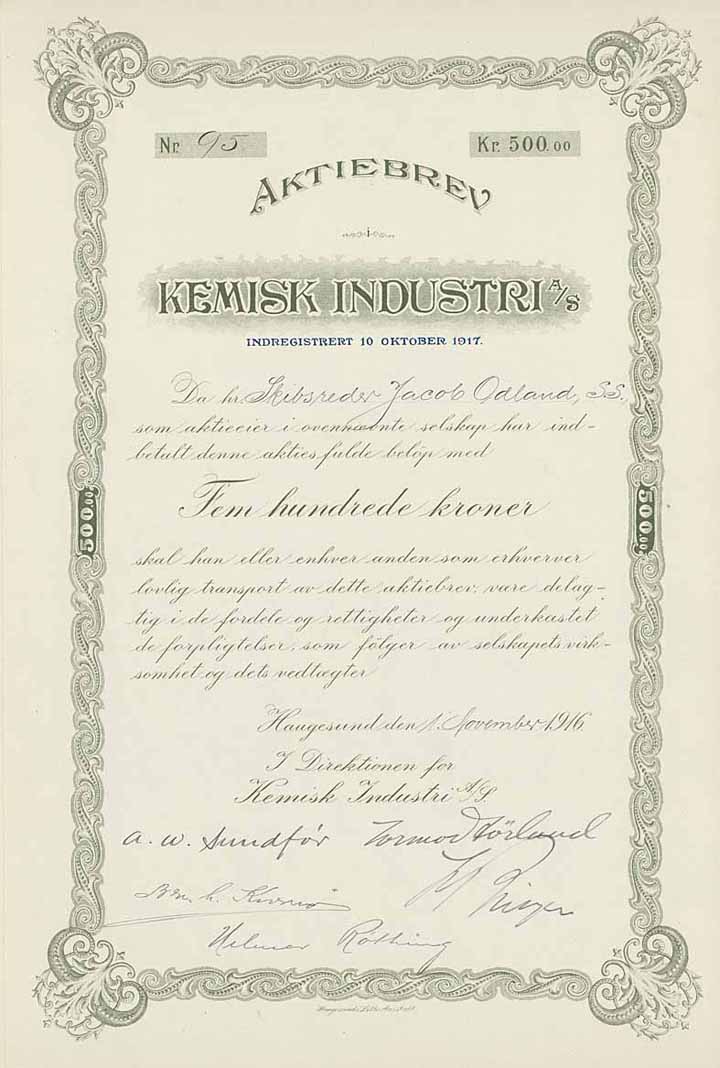 Nr. 95.
Kr. 500.00
AKTIEBREV
i
KEMISK INDUSTRI A/S
INDREGISTRERT 10 OKTOBER 1917.
Da hr. Skibsreder Jacob Odland, SS.,
som aktieeier i ovennævnte selskap har ind-
betalt denne akties fulde beløp med
Fem hundrede kroner
skal han eller enhver anden som erhverver
lovlig transport av dette aktiebrev, være delag-
tig i de fordele og rettigheter og underkastet
de forpligtelser, som følger av selskapets virk-
somhet og dets vedtægter
500.00
500.00
Haugesund den 1. November 1916.
I Direktionen for
Kemisk Industri A/S.
A. W. Sundför Tormod Förland
Helmer Röthing